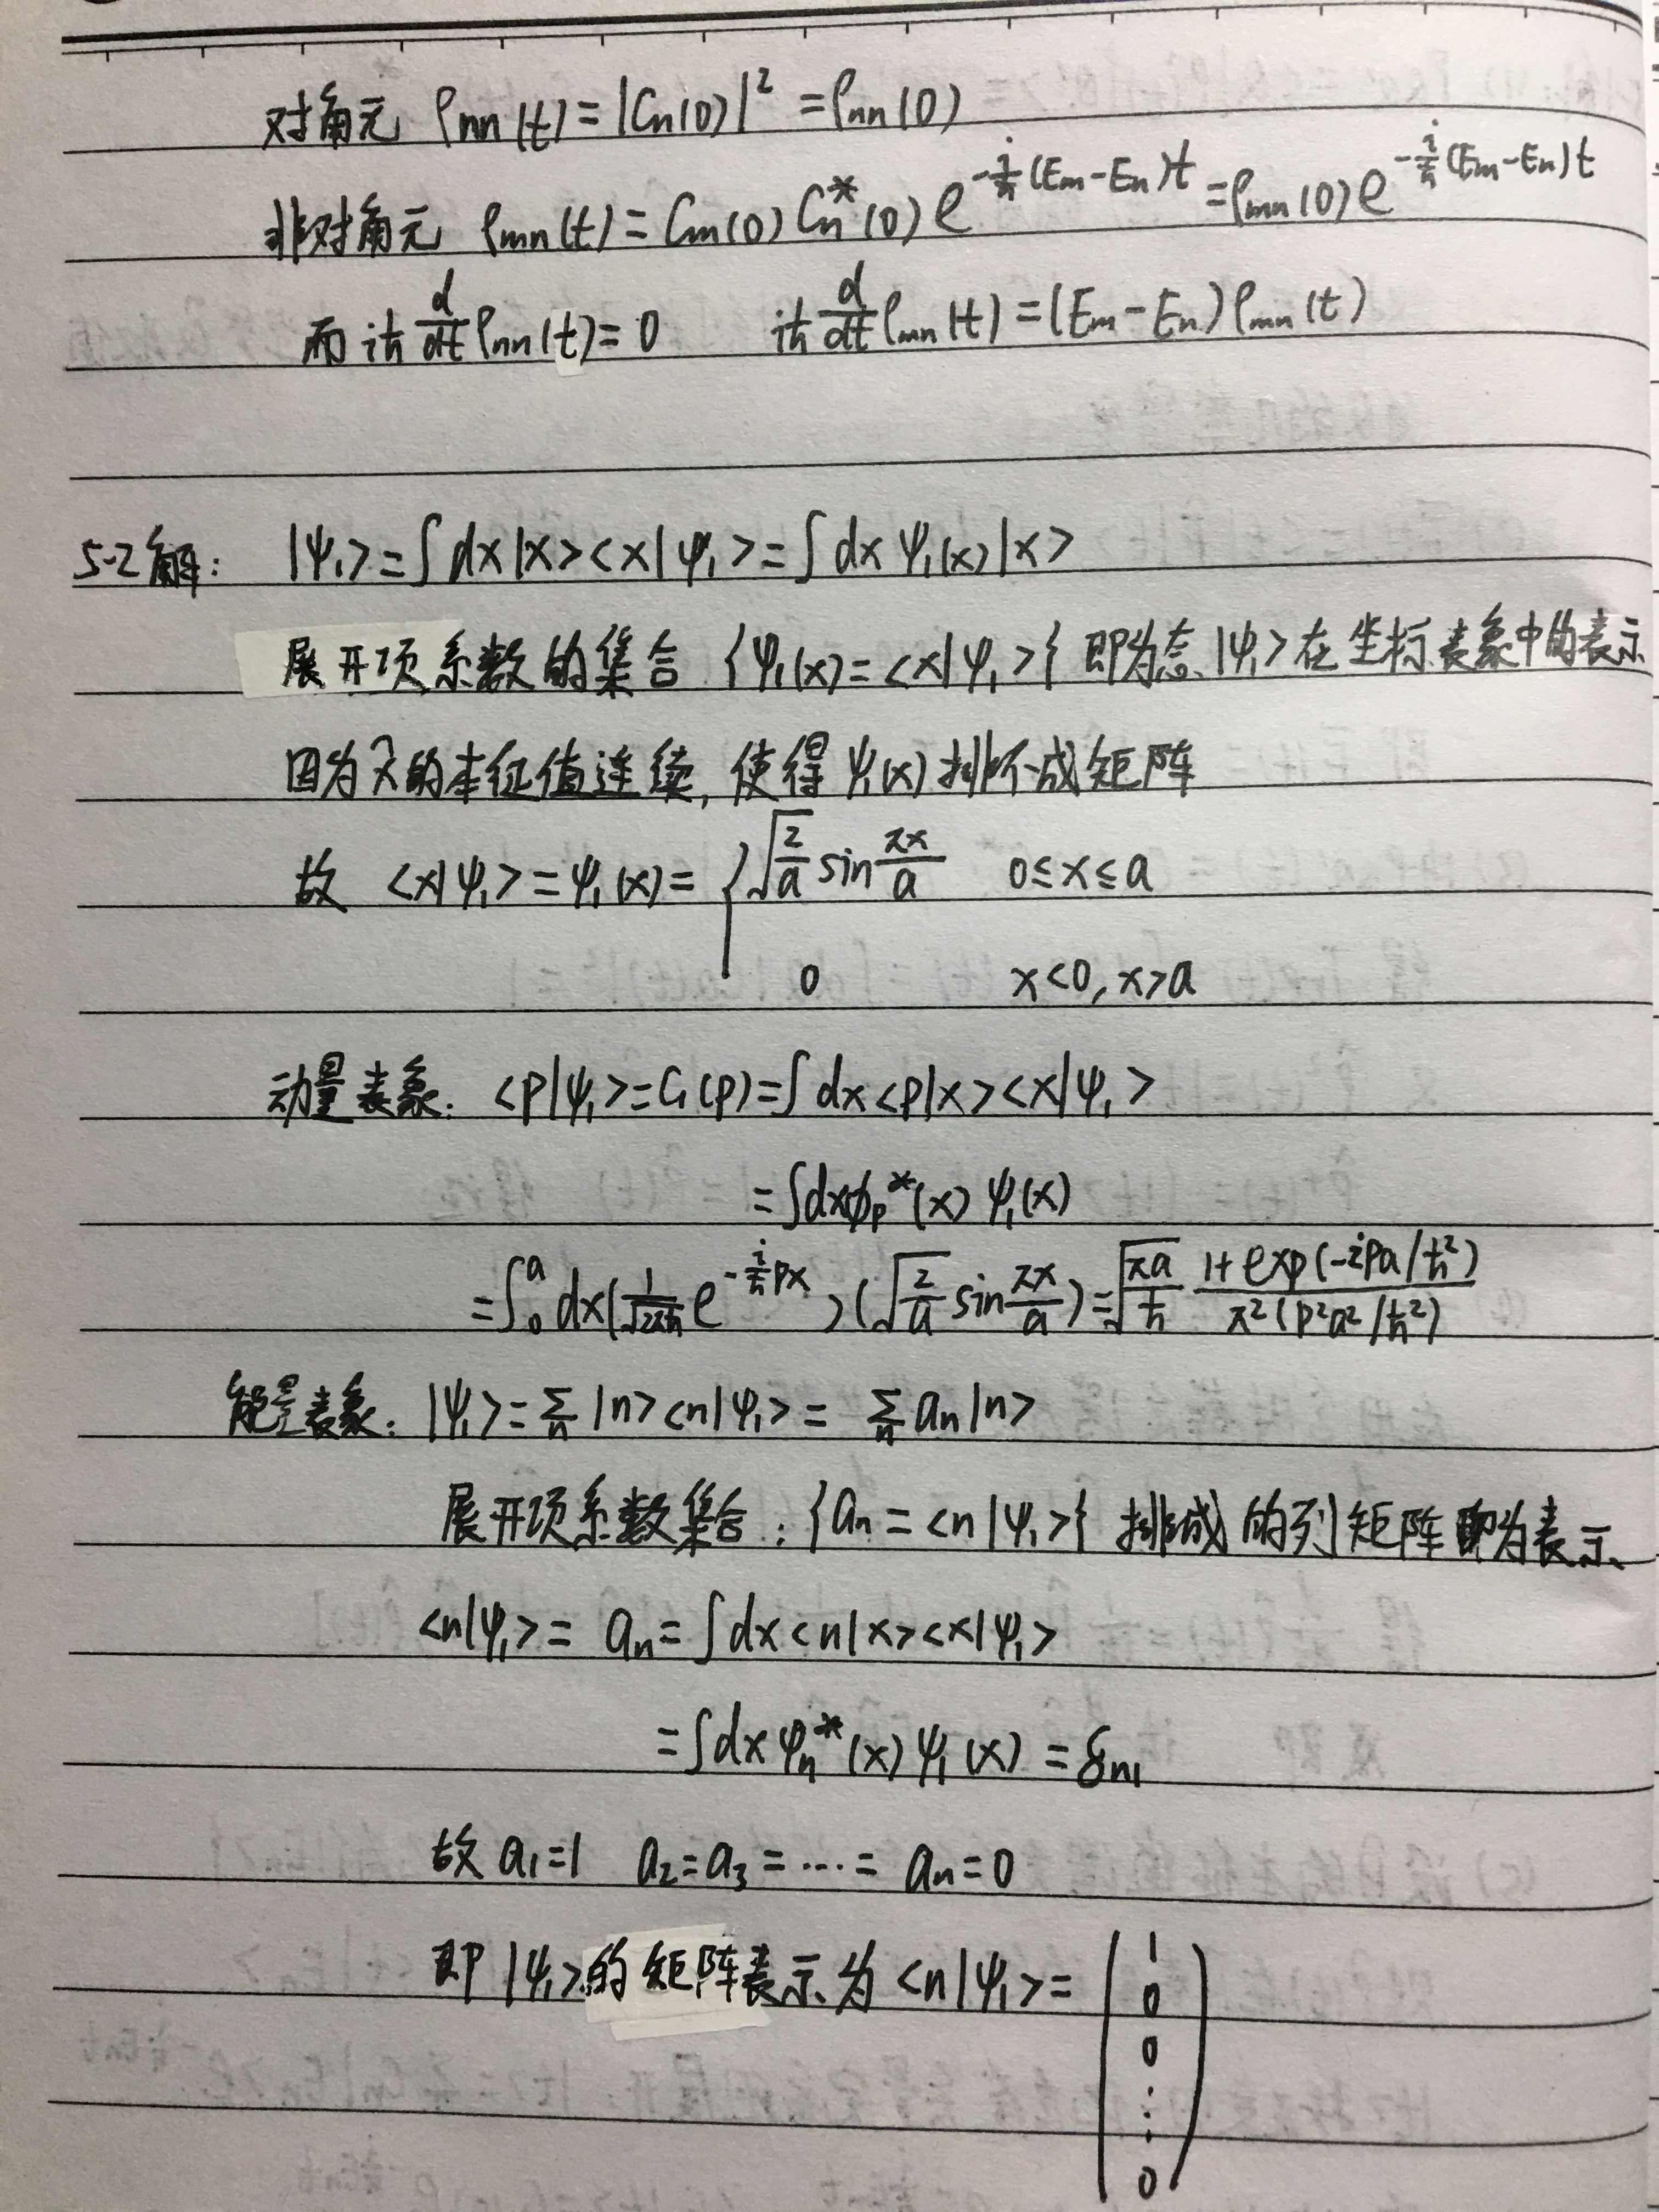 对角元 ρnn(t)=|Cn(0)|²=ρnn(0)
非对角元 ρmn(t)=Cm(0)Cn*(0)e^{-i/ħ(Em-En)t}=ρmn(0)e^{-i/ħ(Em-En)t}
而 iħ d/dt ρnn(t)=0 iħ d/dt ρmn(t)=(Em-En)ρmn(t)
5-2解: |ψ₁>=∫dx|x><x|ψ₁>=∫dxψ₁(x)|x>
展开项系数的集合 {ψ₁(x)=<x|ψ₁>} 即为态|ψ₁>在坐标表象中的表示
因为x̂的本征值连续,使得ψ₁(x)排不成矩阵
故 <x|ψ₁>=ψ₁(x)={√(2/a) sin πx/a 0≤x≤a
0 x<0,x>a
动量表象: <p|ψ₁>=C₁(p)=∫dx<p|x><x|ψ₁>
=∫dxφp*(x)ψ₁(x)
=∫₀ᵃdx(1/√(2πħ) e^{-i/ħ px})(√(2/a) sin πx/a)=√(πa/ħ) (1+exp(-ipa/ħ²))/(π²(p²a²/ħ²))
能量表象: |ψ₁>=∑n|n><n|ψ₁>=∑n an|n>
展开项系数集合:{an=<n|ψ₁>} 排成的列矩阵即为表示
<n|ψ₁>=an=∫dx<n|x><x|ψ₁>
=∫dxφn*(x)ψ₁(x)=δn1
故a₁=1 a₂=a₃=····=an=0
即|ψ₁>的矩阵表示为<n|ψ₁>=(1
0
0
⋮
0)